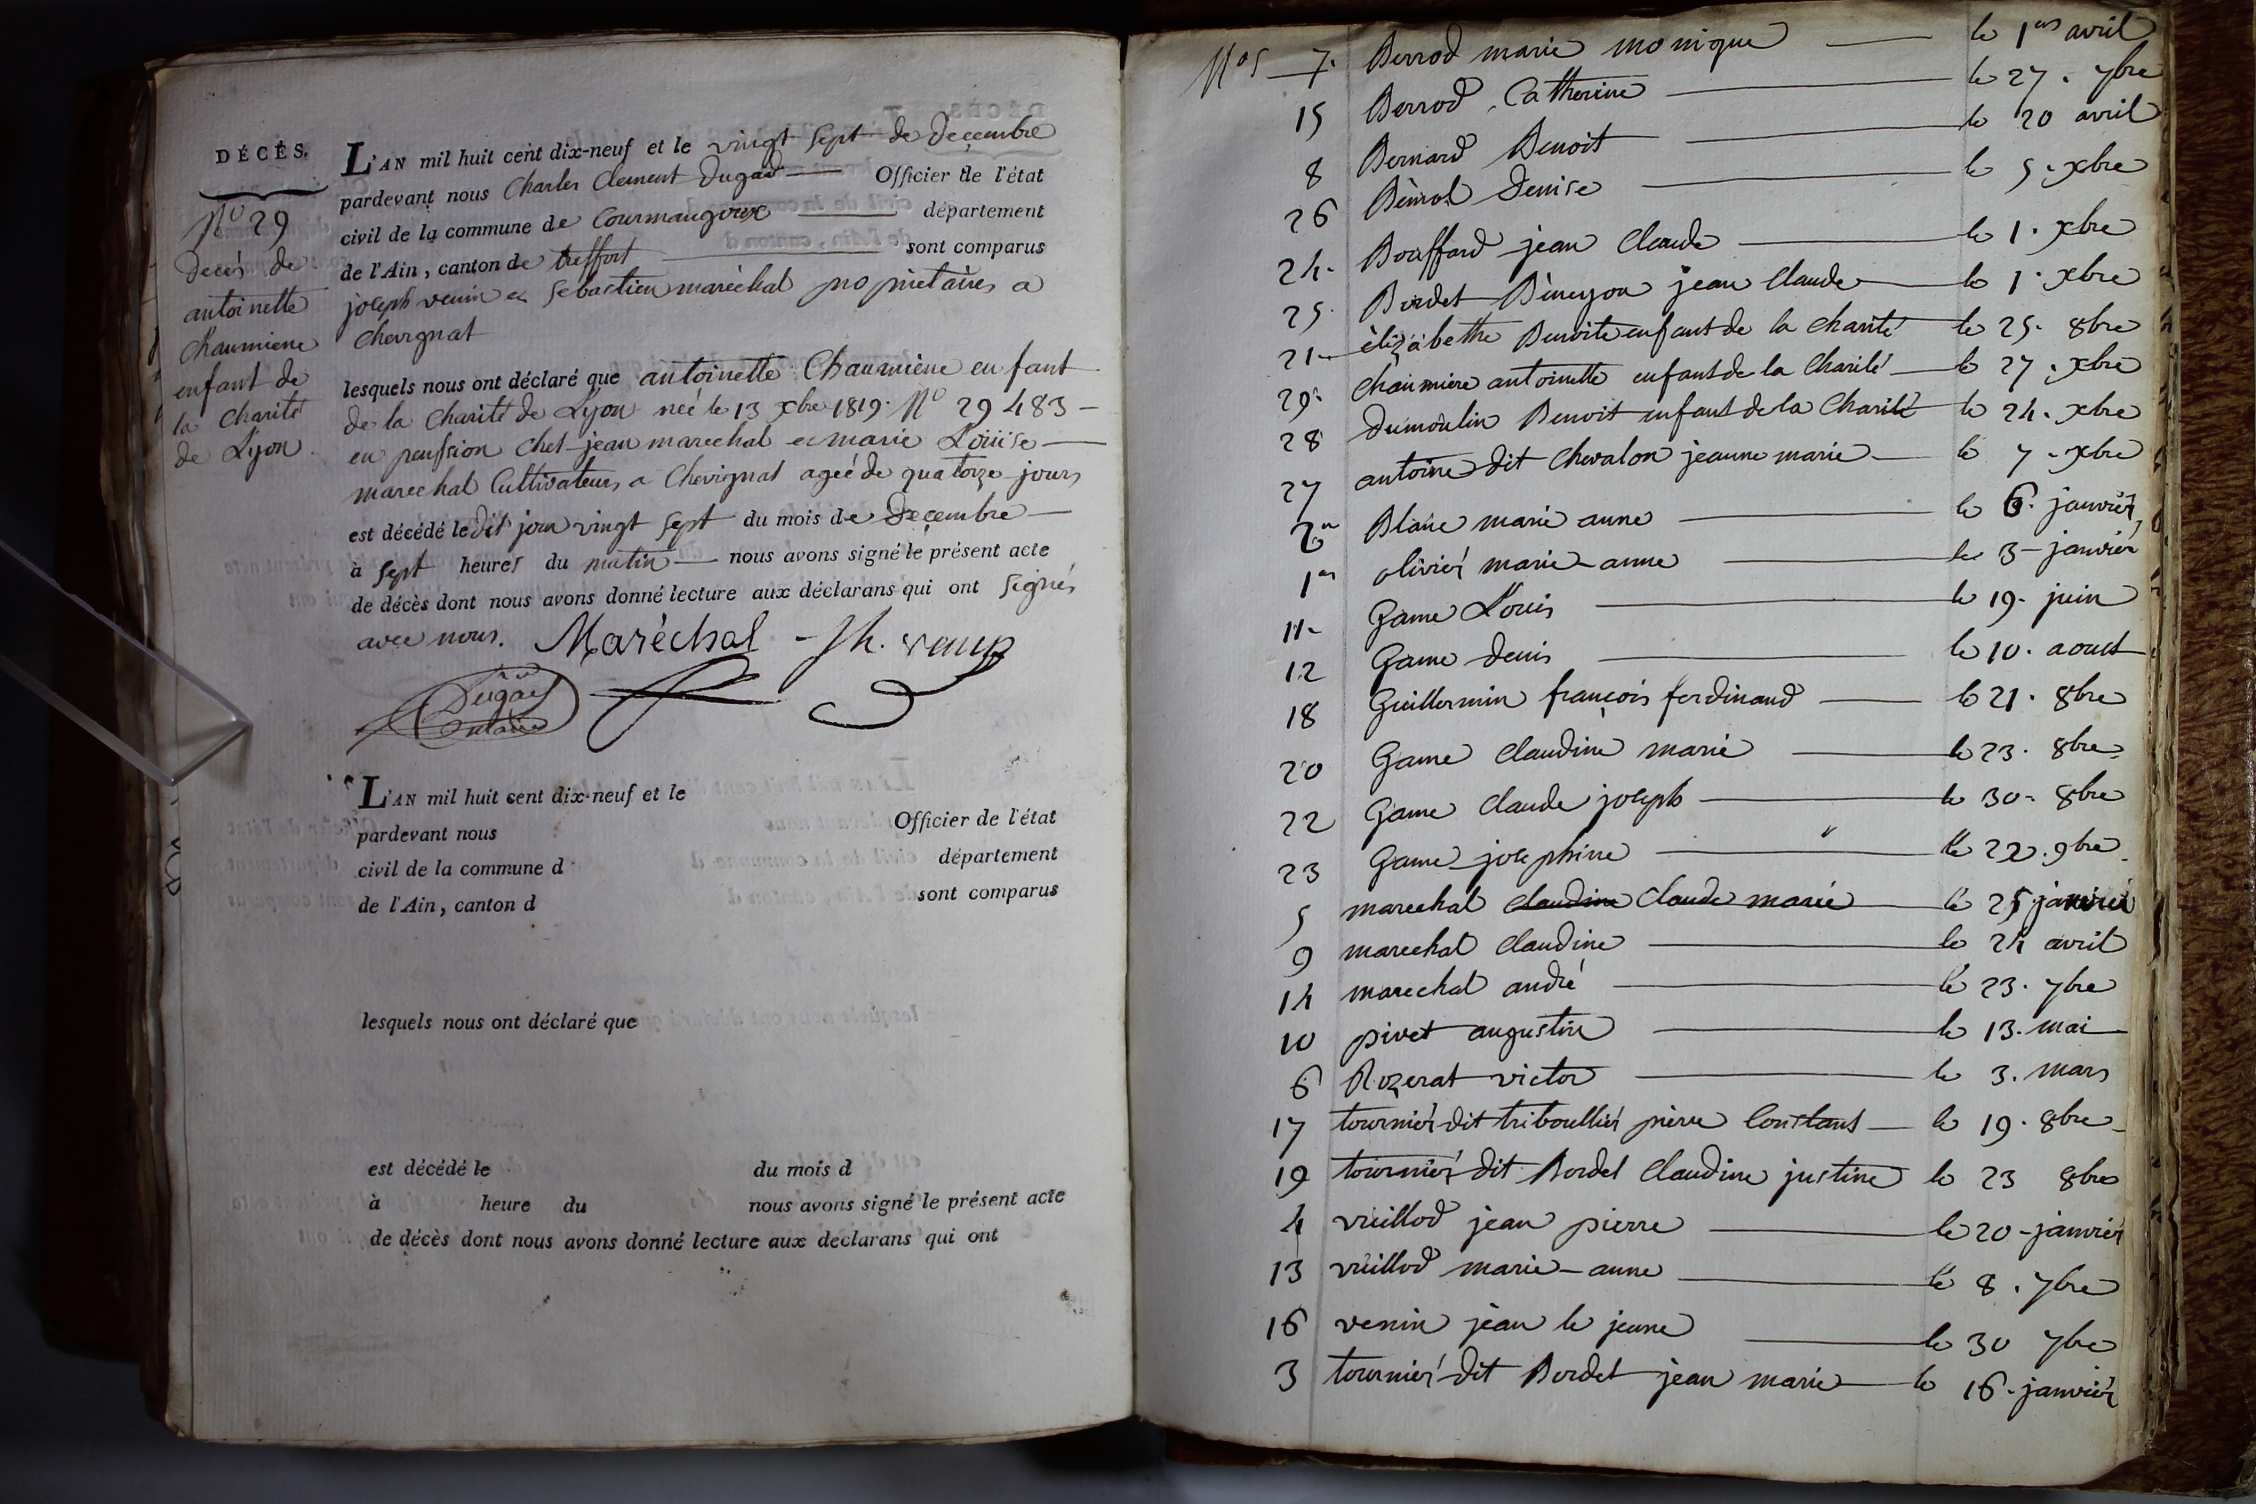 DÉCÈS.
N° 29
decès de
antoinette
Chaumiene
enfant de
la charité
de Lyon
L'AN mil huit cent dix-neuf et le vingt sept de decembre
pardevant nous Charles Clement Dugad Officier de l'état
civil de la commune de Courmangoux département
de l'Ain, canton de treffort sont comparus
joseph venin et sebastien maréchal propriétaires a
chevignat
lesquels nous ont déclaré que antoinette Chaumiène enfant
de la charité de Lyon neé le 13 xbre 1819. N° 29483
en pension chet jean marechal et marie Louise
marechal Cultivateurs a Chevignat ageé de quatorze jours
est décédé le dit jour vingt sept du mois de decembre
à sept heures du matin nous avons signé le présent acte
de décès dont nous avons donné lecture aux déclarans qui ont signés
avec nous. Maréchal Jh. venin
Dugad
L'AN mil huit cent dix-neuf et le
pardevant nous Officier de l'état
civil de la commune d département
de l'Ain, canton d sont comparus
lesquels nous ont déclaré que
est décédé le du mois d
à heure du nous avons signé le présent acte
de décès dont nous avons donné lecture aux declarans qui ont
Nos 7. Berrod marie monique le 1er avril
15 Berrod Catherine le 27. 7bre
8 Bernard Benoit le 20 avril
26 Denise le 5. xbre
24. Bouffard jean Claude le 1. xbre
25. Bordet jean Claude le 1. xbre
21 élizabethe Benoite enfant de la charité le 25. 8bre
29. chaumiere antoinette enfant de la charité le 27. xbre
28 dumoulin Benoit enfant de la charité le 24. xbre
27 antoine dit Chevalon jeanne marie le 7. xbre
2 Blanc marie anne le 6. janvier
1er olivier marie-anne le 3 janvier
11 Game Louis le 19. juin
12 Game denis le 10. aoust
18 Guillermin françois ferdinand le 21. 8bre
20 Game claudine marie le 23. 8bre
22 Game claude joseph le 30. 8bre
23 Game josephine le 22. 9bre
5 marechal claudine Claude marie le 25 janvier
9 marechal claudine le 24 avril
14 marechal andré le 23. 7bre
10 pivet augustin le 13. mai
6 Rozerat victor le 3. mars
17 tournier dit triboullier pierre Constant le 19. 8bre
19 tournier dit Bordet Claudine justine le 23 8bre
4 vuillod jean pierre le 20 janvier
13 vuillod marie-anne le 8. 7bre
16 venin jean le jeune le 30 7bre
3 tournier dit Bordet jean marie le 16. janvier